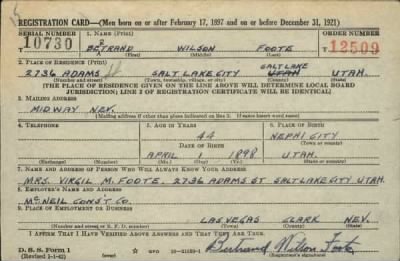 REGISTRATION CARD—(Men born on or after February 17, 1897 and on or before December 31, 1921)
SERIAL NUMBER 1. NAME (Print) ORDER NUMBER
10730 BETRAND WILSON FOOTE T12509
R
(First) (Middle) (Last)
2. PLACE OF RESIDENCE (Print)
SALT LAKE
2736 ADAMS SALT LAKE CITY UTAH UTAH.
(Number and street) (Town, township, village, or city) (County) (State)
[THE PLACE OF RESIDENCE GIVEN ON THE LINE ABOVE WILL DETERMINE LOCAL BOARD
JURISDICTION; LINE 2 OF REGISTRATION CERTIFICATE WILL BE IDENTICAL]
3. MAILING ADDRESS
MIDWAY NEV.
[Mailing address if other than place indicated on line 2. If same insert word same]
4. TELEPHONE 5. AGE IN YEARS 6. PLACE OF BIRTH
44 NEPHI CITY
DATE OF BIRTH (Town or county)
APRIL 1 1898 UTAH.
(Exchange) (Number) (Mo.) (Day) (Yr.) (State or country)
7. NAME AND ADDRESS OF PERSON WHO WILL ALWAYS KNOW YOUR ADDRESS
MRS. VIRGIL M. FOOTE. 2736 ADAMS ST SALT LAKE CITY UTAH.
8. EMPLOYER'S NAME AND ADDRESS
MCNEIL CONST CO.
9. PLACE OF EMPLOYMENT OR BUSINESS
LAS VEGAS CLARK NEV.
(Number and street or R. F. D. number) (Town) (County) (State)
I AFFIRM THAT I HAVE VERIFIED ABOVE ANSWERS AND THAT THEY ARE TRUE.
D. S. S. Form 1
(Revised 1-1-42) GPO Bertrand Wilson Foote
(Registrant's signature)